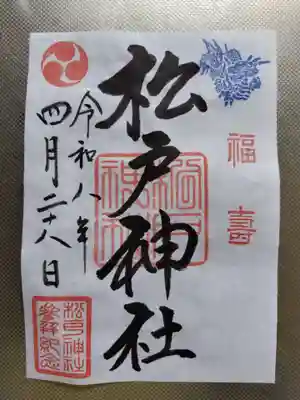 福壽
松戸神社
令和八年
四月二十八日
松戸神社
参拝紀念